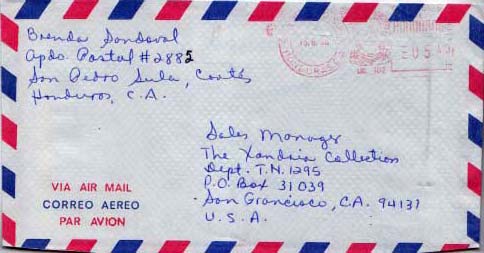 Brenda Sandoval
Apdo. Postal # 2882
San Pedro Sula, Cortés
Honduras, C.A.
HONDURAS
054
Sales Manager
The Xandria Collection
Dept. T.N. 1295
P.O. Box 31039
San Francisco, CA. 94131
U.S.A.
VIA AIR MAIL
CORREO AEREO
PAR AVION